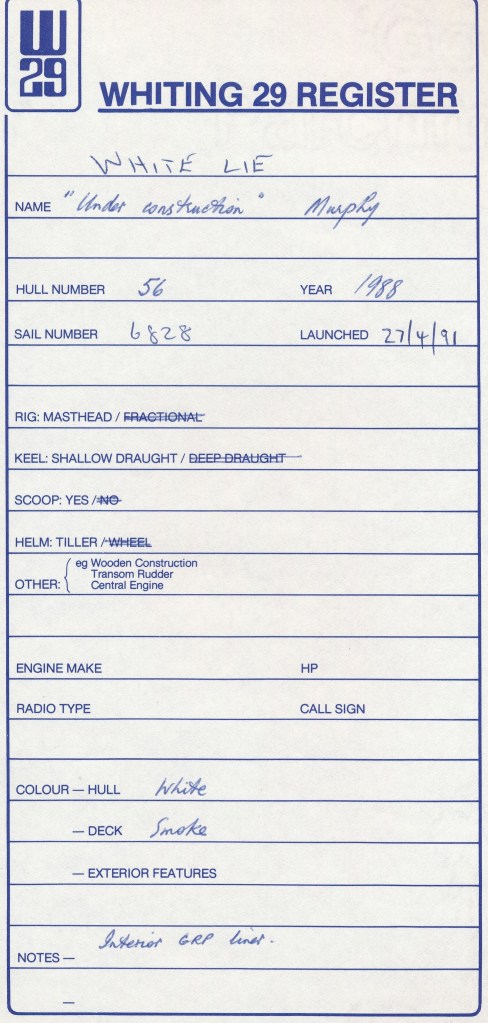 W
29
WHITING 29 REGISTER
WHITE LIE
NAME "Under construction" Murphy
HULL NUMBER 56 YEAR 1988
SAIL NUMBER 6828 LAUNCHED 27/4/91
RIG: MASTHEAD / FRACTIONAL
KEEL: SHALLOW DRAUGHT / DEEP DRAUGHT
SCOOP: YES / NO
HELM: TILLER / WHEEL
OTHER: { eg Wooden Construction
Transom Rudder
Central Engine
ENGINE MAKE HP
RADIO TYPE CALL SIGN
COLOUR — HULL White
— DECK Smoke
— EXTERIOR FEATURES
Interior GRP liner.
NOTES —
—